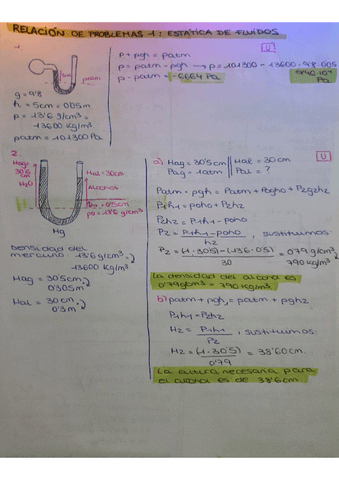 RELACIÓN DE PROBLEMAS 1: ESTÁTICA DE FLUIDOS
U
1.
p + ρgh = patm
p = patm - ρgh → p = 101300 - 13600·9'8·0'05
p - patm = -6664 Pa
9'40·10⁴ Pa
patm
g = 9'8
h = 5cm = 0'05m
ρ = 13'6 g/cm³ =
= 13600 Kg/m³
patm = 101300 Pa
2.
Hag = 30'5 cm
H₂O
Hal = 30cm
ALCOHOL
Ho = 0'5cm
ρo = 13'6 g/cm³
Hg
Densidad del
mercurio → 13'6 g/cm³
13600 Kg/m³
Hag = 30'5cm
0'305m
Hal = 30 cm
0'3m
a) Hag = 30'5cm
Hal = 30 cm
U
ρag = 1atm
ρal = ?
Patm + ρgh = Patm + ρogho + ρ2gh2
ρ1h1 = ρoho + ρ2h2
ρ2h2 = ρ1h1 - ρoho
ρ2 = ρ1h1 - ρoho / h2 , sustituimos
ρ2 = (1·30'5) - (13'6·0'5) / 30 = 0'79 g/cm³
790 Kg/m³
La densidad del alcohol es
0'79g/cm³ = 790 Kg/m³
b) patm + ρgh1 = patm + ρgh2
ρ1h1 = ρ2h2
H2 = ρ1h1 / ρ2 , sustituimos:
H2 = (1·30'5) / 0'79 = 38'60cm.
La altura necesaria para
el alcohol es de 38'6cm